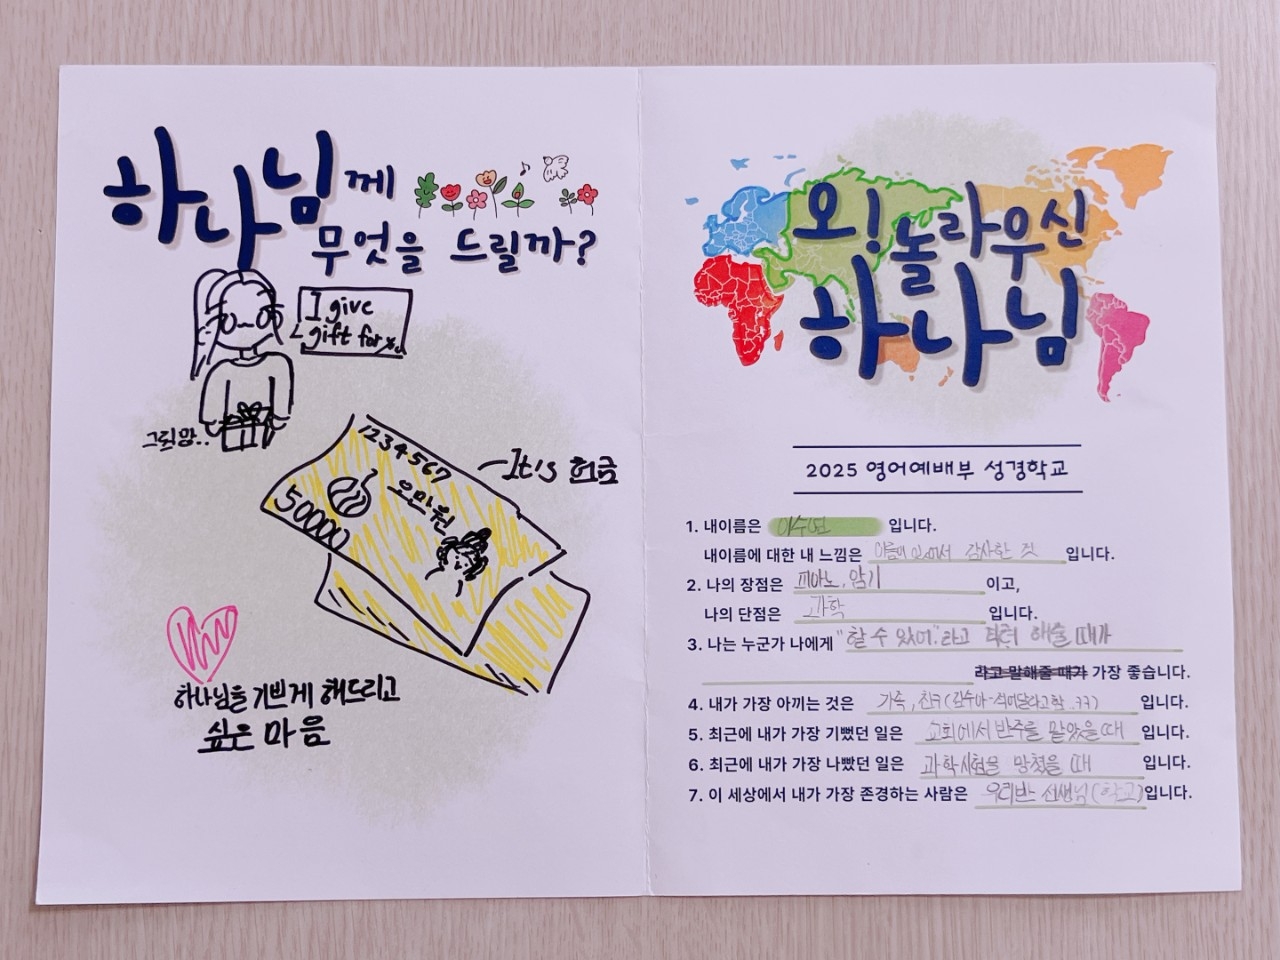 하나님께
무엇을 드릴까?
I give
gift for you
그림망..
1234567
오만원
50000
It's 헌금
하나님을 기쁘게 해드리고
싶은 마음
오! 놀라우신
하나님
2025 영어예배부 성경학교
1. 내이름은 입니다.
내이름에 대한 내 느낌은 이름이 있어서 감사한 것 입니다.
2. 나의 장점은 피아노, 암기 이고,
나의 단점은 과학 입니다.
3. 나는 누군가 나에게 "할 수 있어"라고 격려 해줄 때가
라고 말해줄 때가 가장 좋습니다.
4. 내가 가장 아끼는 것은 가족, 친구 입니다.
5. 최근에 내가 가장 기뻤던 일은 교회에서 반주를 맡았을 때 입니다.
6. 최근에 내가 가장 나빴던 일은 과학시험을 망쳤을 때 입니다.
7. 이 세상에서 내가 가장 존경하는 사람은 우리반 선생님(학교) 입니다.